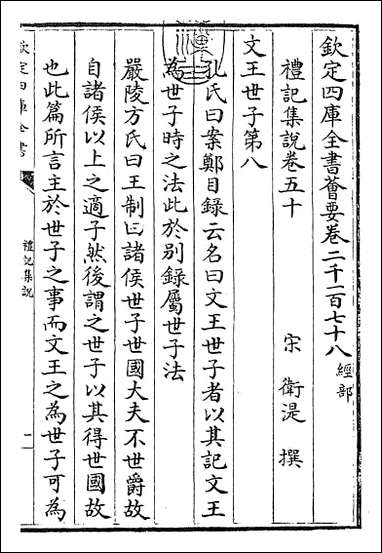 欽定四庫全書薈要卷二千一百七十八 經部
禮記集說卷五十
宋 衛湜 撰
文王世子第八
孔氏曰案鄭目録云名曰文王世子者以其記文王
為世子時之法此於别録屬世子法
嚴陵方氏曰王制曰諸侯世子世國大夫不世爵故
自諸侯以上之適子然後謂之世子以其得世國故
也此篇所言主於世子之事而文王之為世子可為
欽定四庫全書
禮記集說